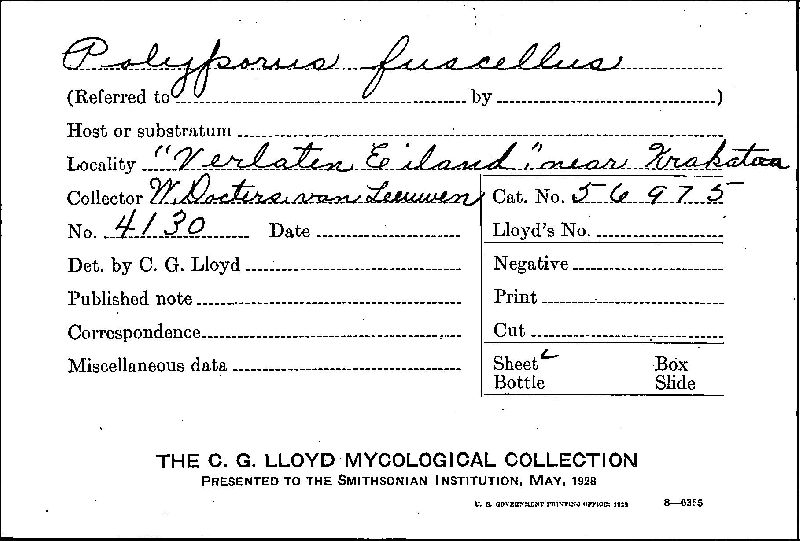 Polyporus fuscellus
(Referred to by )
Host or substratum
Locality "Verlaten Eiland" near Krakatoa
Collector W. Docters van Leeuwen Cat. No. 56975
No. 4130 Date Lloyd's No.
Det. by C. G. Lloyd Negative
Published note Print
Correspondence Cut
Miscellaneous data Sheet ✓ Box
Bottle Slide
THE C. G. LLOYD MYCOLOGICAL COLLECTION
PRESENTED TO THE SMITHSONIAN INSTITUTION, MAY, 1928
U. S. GOVERNMENT PRINTING OFFICE: 1928 8—6355